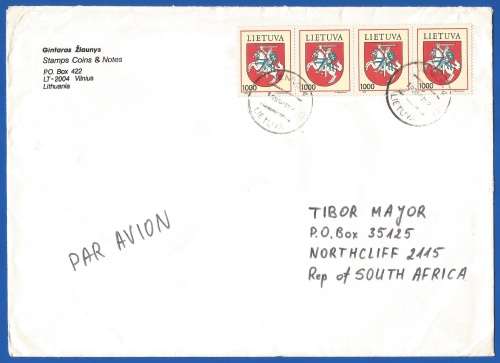 Gintaras Žiaunys
Stamps Coins & Notes
P.O. Box 422
LT-2004 Vilnius
Lithuania
LIETUVA LIETUVA LIETUVA LIETUVA
1000 1000 1000 1000
PAR AVION
TIBOR MAYOR
P.O. Box 35125
NORTHCLIFF 2115
Rep of SOUTH AFRICA